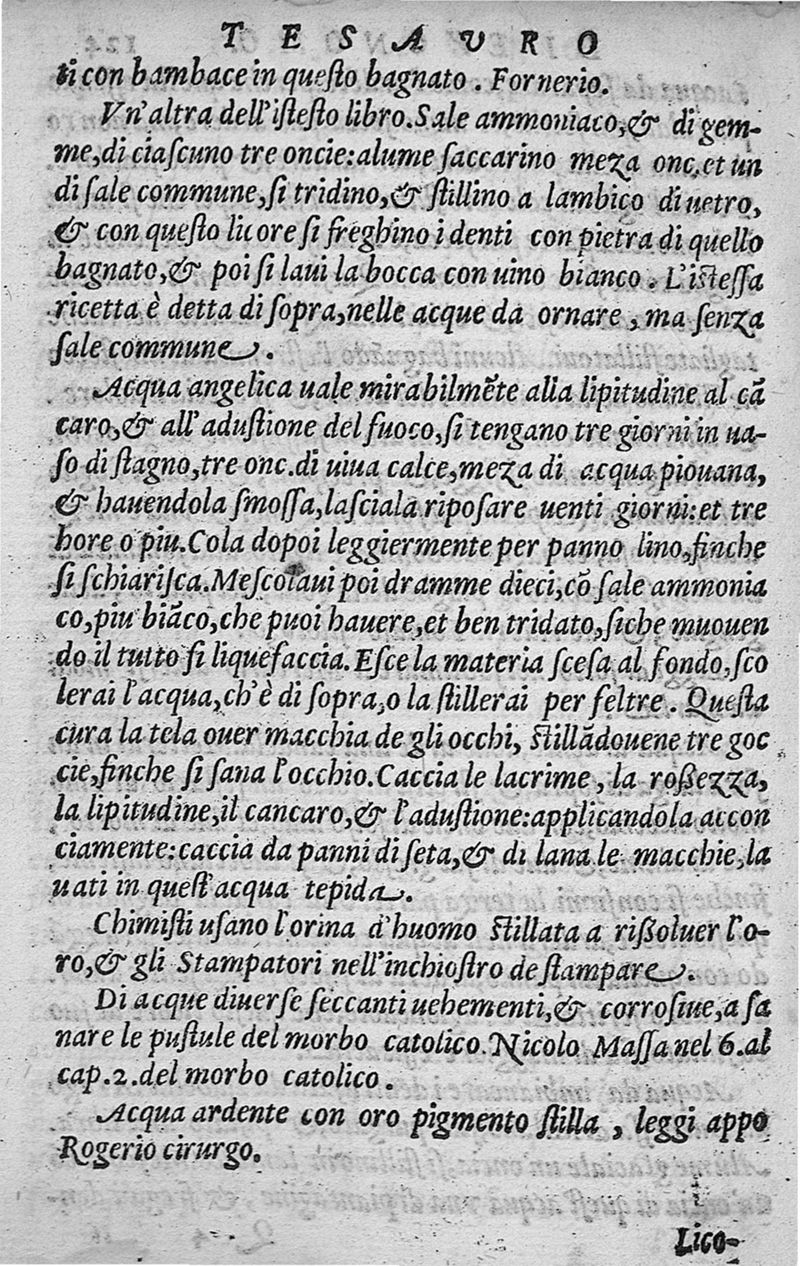 TESAVRO
ti con bambace in questo bagnato. Fornerio.
Vn'altra dell'istesto libro. Sale ammoniaco, & di gem-
me, di ciascuno tre oncie: alume saccarino meza onc. et un
di sale commune, si tridino, & stillino a lambico di uetro,
& con questo licore si freghino i denti con pietra di quello
bagnato, & poi si laui la bocca con uino bianco. L'istessa
ricetta è detta di sopra, nelle acque da ornare, ma senza
sale commune.
Acqua angelica uale mirabilmẽte alla lipitudine al cã
caro, & all'adustione del fuoco, si tengano tre giorni in ua-
so di stagno, tre onc. di uiua calce, meza di acqua piouana,
& hauendola smossa, lasciala riposare uenti giorni: et tre
hore o piu. Cola dopoi leggiermente per panno lino, finche
si schiarisca. Mescolaui poi dramme dieci, cõ sale ammonia
co, piu biãco, che puoi hauere, et ben tridato, siche mouen
do il tutto si liquefaccia. Esce la materia scesa al fondo, sco
lerai l'acqua, ch'è di sopra, o la stillerai per feltre. Questa
cura la tela ouer macchia de gli occhi, stillãdouene tre goc
cie, finche si sana l'occhio. Caccia le lacrime, la roßezza,
la lipitudine, il cancaro, & l'adustione: applicandola accon
ciamente: caccia da panni di seta, & di lana le macchie, la
uati in quest'acqua tepida.
Chimisti usano l'orina d'huomo stillata a rißoluer l'o-
ro, & gli Stampatori nell'inchiostro de stampare.
Di acque diuerse seccanti uehementi, & corrosiue, a sa
nare le pustule del morbo catolico. Nicolo Massa nel 6. al
cap. 2. del morbo catolico.
Acqua ardente con oro pigmento stilla, leggi appo
Rogerio cirurgo.
Lico-